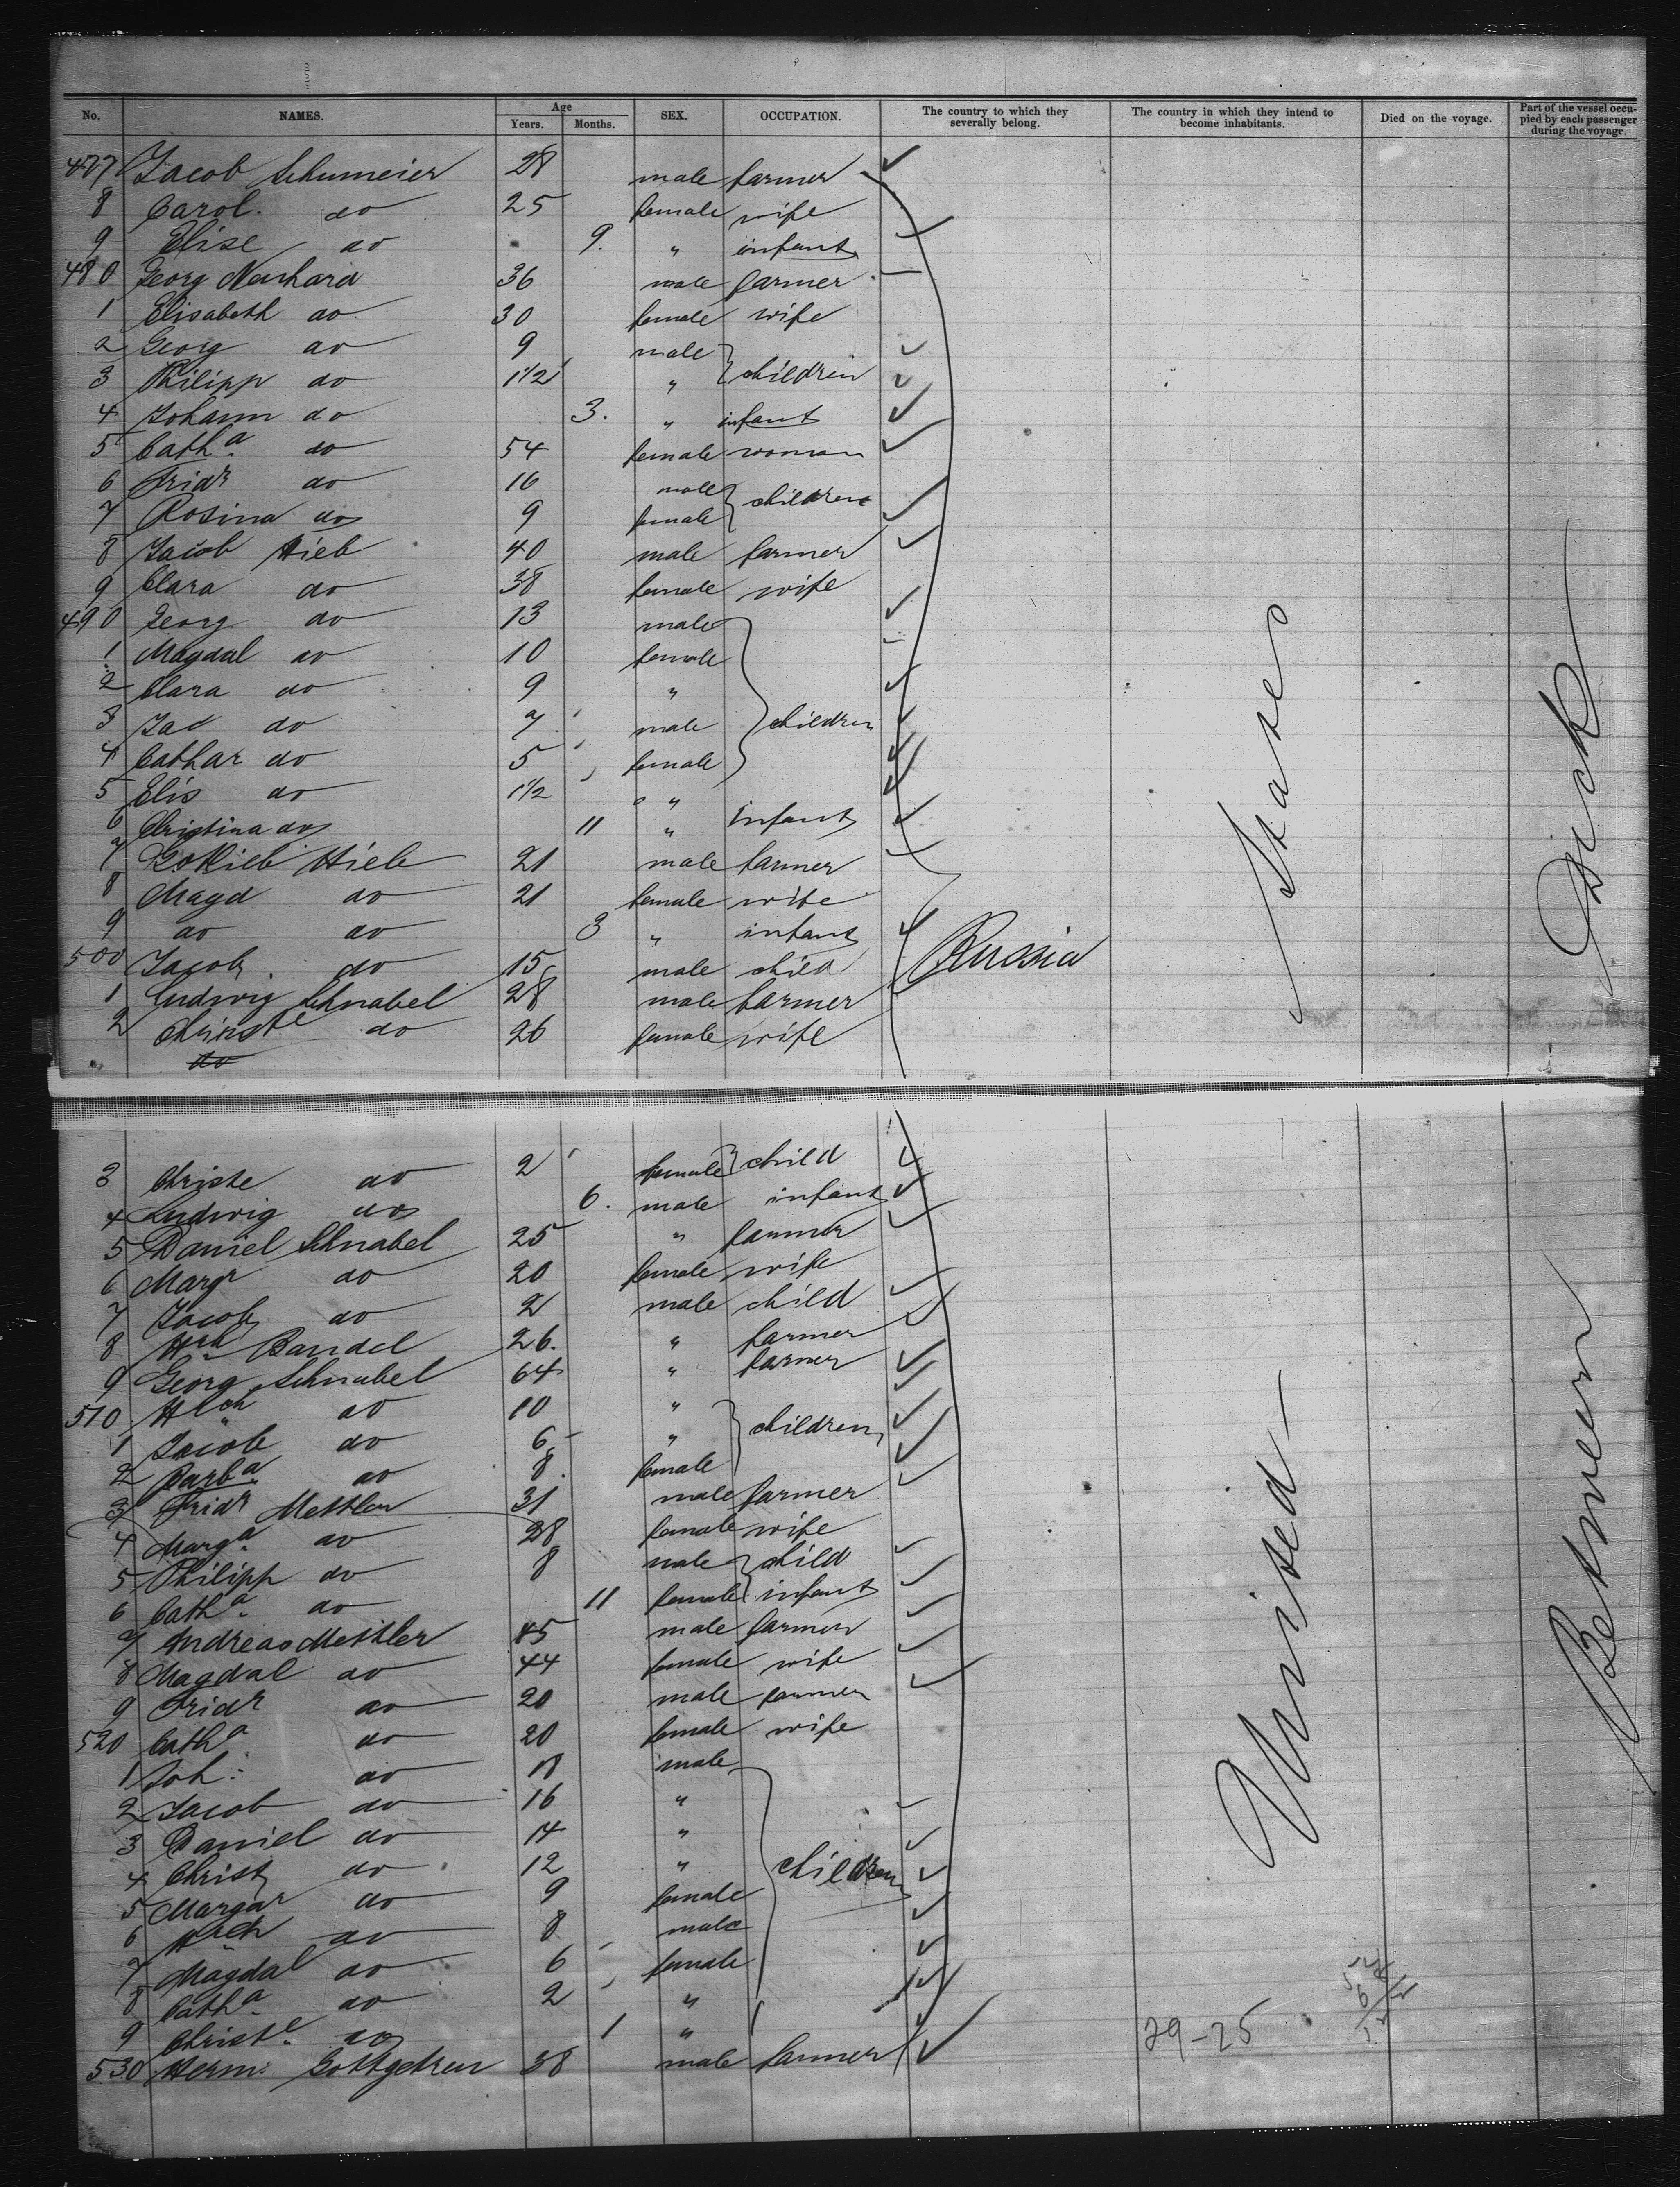 No. NAMES. Age Years. Months. SEX. OCCUPATION. The country to which they severally belong. The country in which they intend to become inhabitants. Died on the voyage. Part of the vessel occupied by each passenger during the voyage.
477 Jacob Schumeier 28 male farmer
8 Carol. do 25 female wife
9 Elise do 9. " infant
480 Georg Neuhard 36 male farmer
1 Elisabeth do 30 female wife
2 Georg do 9 male
3 Philipp do 1 1/2 " children
4 Johann do 3. " infant
5 Catha do 54 female woman
6 Fridr do 16 male children
7 Rosina do 9 female
8 Jacob Hieb 40 male farmer
9 Clara do 38 female wife
490 Georg do 13 male
1 Magdal do 10 female
2 Clara do 9 "
3 Jac do 7 male children
4 Cathar do 5 female
5 Elis do 1 1/2 "
6 Christina do 11 " infant
7 Gottlieb Hieb 21 male farmer
8 Magd do 21 female wife
9 do do 3 " infant
500 Jacob do 15 male child Russia
1 Ludwig Schnabel 28 male farmer
2 Christe do 26 female wife
do
3 Christe do 2 female child
4 Ludwig do 6. male infant
5 Daniel Schnabel 25 " farmer
6 Margr do 20 female wife
7 Jacob do 2 male child
8 Hch Bandel 26. " farmer
9 Georg Schnabel 64 " farmer
510 Hch do 10 "
1 Jacob do 6 " children
2 Barba do 8. female
3 Fridr Mettler 31 male farmer
4 Marga do 28 female wife
5 Philipp do 8 male child
6 Catha do 11 female infant
7 Andreas Mettler 45 male farmer
8 Magdal do 44 female wife
9 Fridr do 20 male farmer
520 Catha do 20 female wife
1 Joh: do 18 male
2 Jacob do 16 "
3 Daniel do 14 "
4 Christ do 12 " children
5 Margar do 9 female
6 Hch do 8 male
7 Magdal do 6 female
8 Catha do 2 "
9 Christe do 1 "
530 Herm: Gottgetreu 38 male farmer
29-25
United States
Between Deck